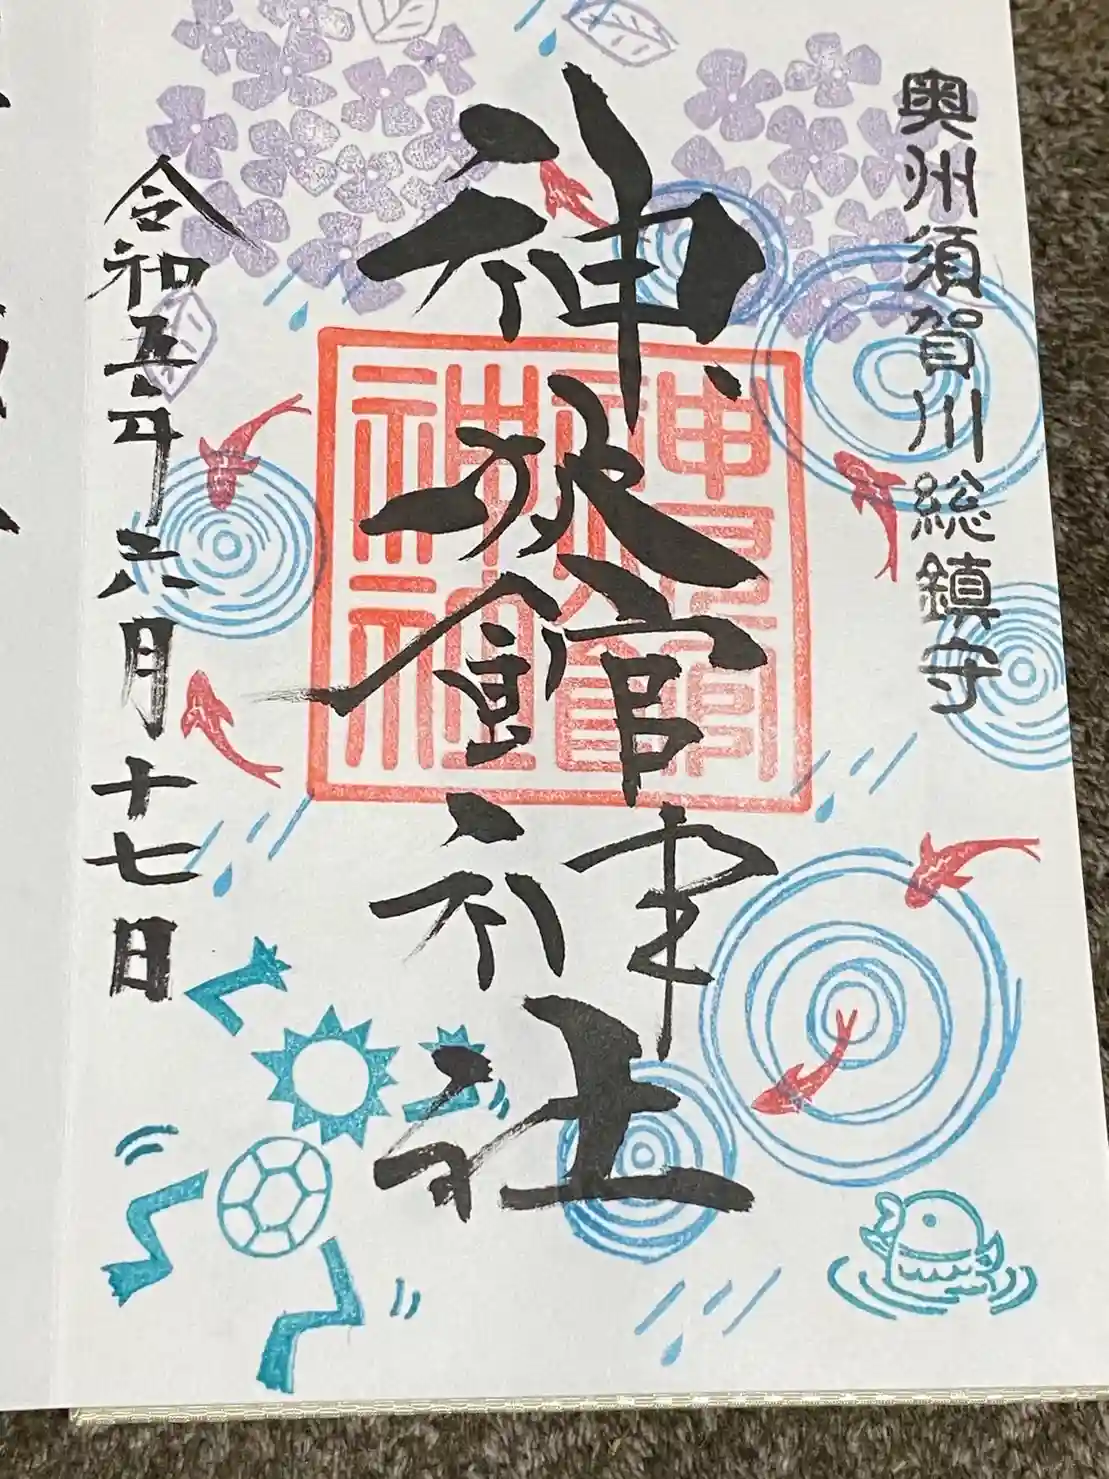 奥州須賀川総鎮守
神炊館神社
神炊館
神社
令和五年六月十七日